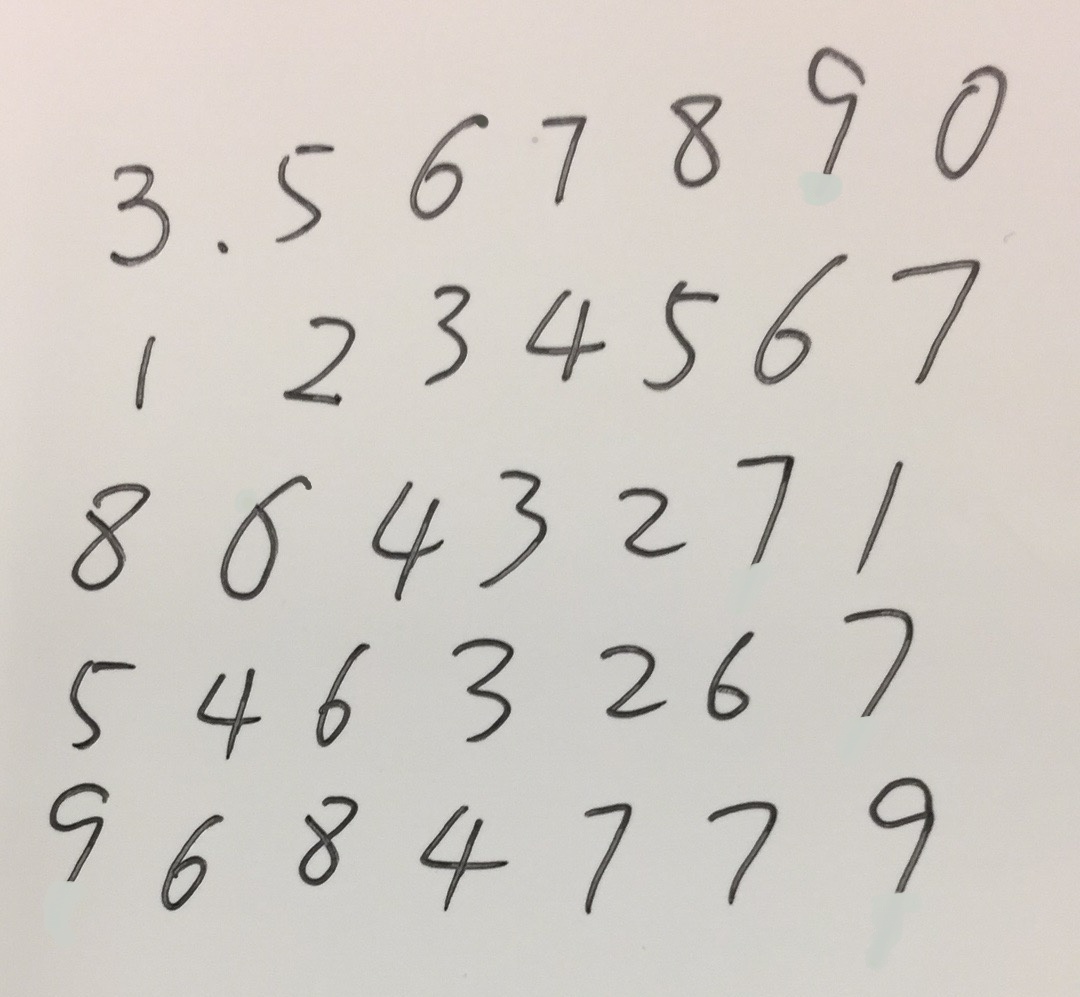 3. 5 6 7 8 9 0
1 2 3 4 5 6 7
8 6 4 3 2 7 1
5 4 6 3 2 6 7
9 6 8 4 7 7 9